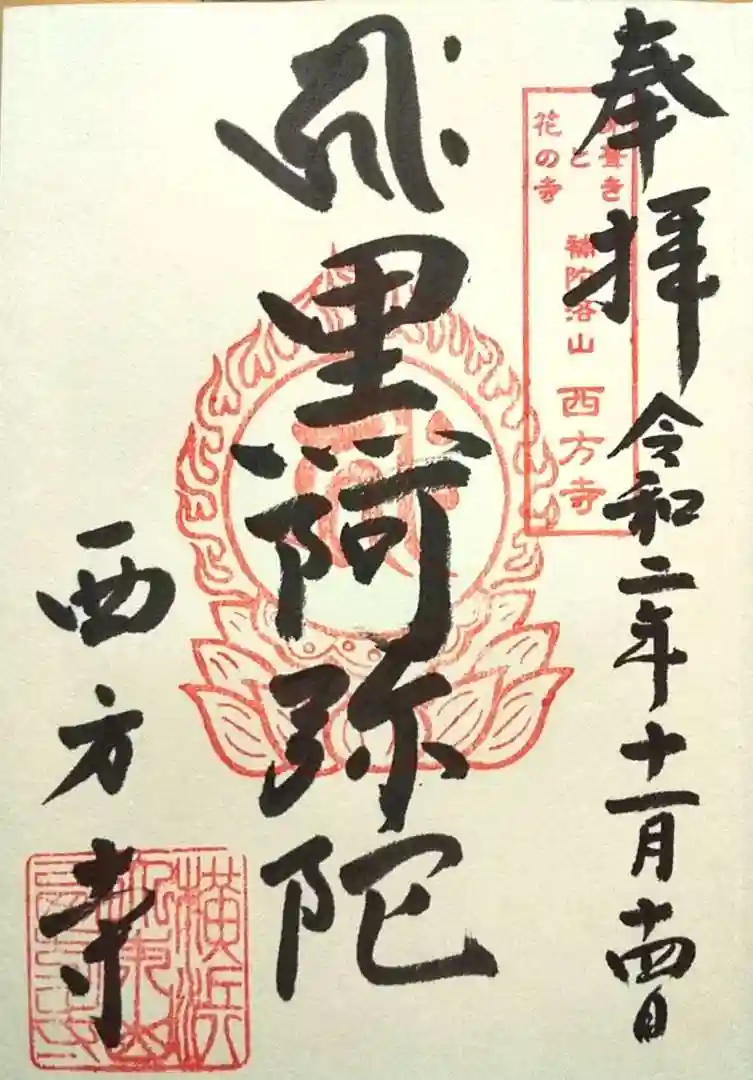 奉拝 令和二年十一月十四日
茅葺き
と
花の寺
補陀洛山 西方寺
黒阿弥陀
西方寺
横浜